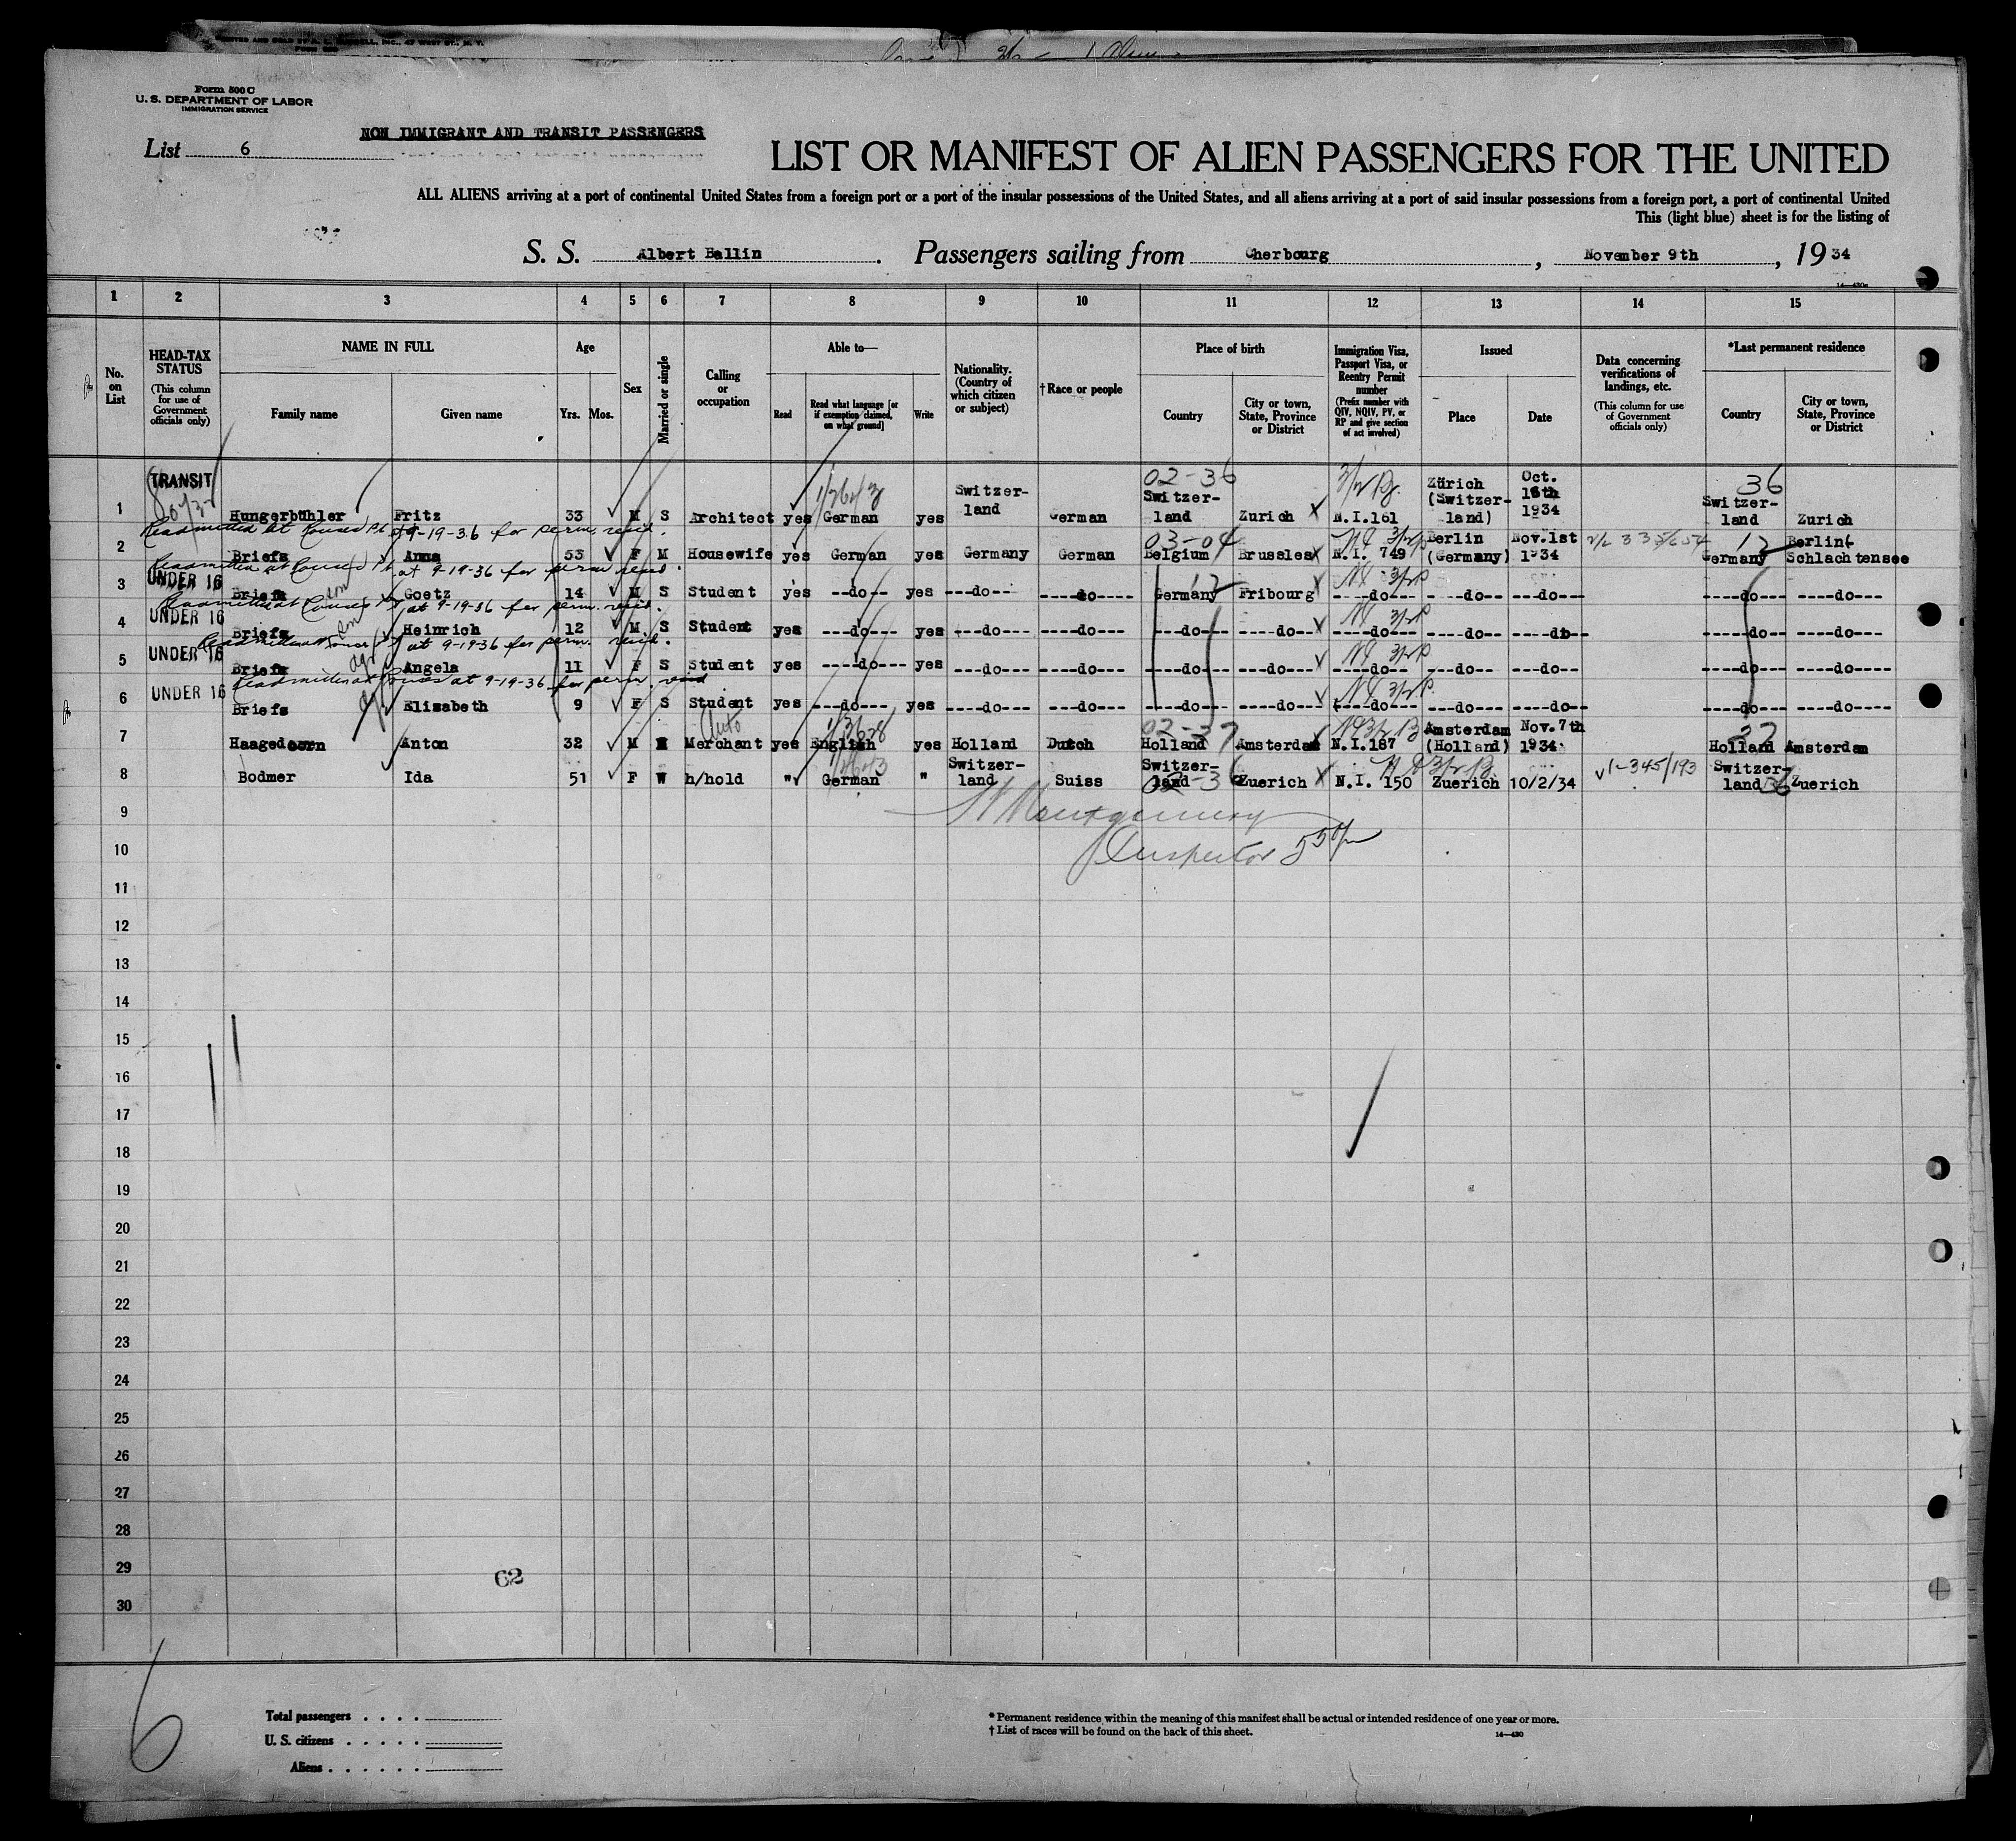 PRINTED AND SOLD BY
INC., 47 WEST ST., N. Y.
Form 500 C
U. S. DEPARTMENT OF LABOR
IMMIGRATION SERVICE
NON IMMIGRANT AND TRANSIT PASSENGERS
List 6
LIST OR MANIFEST OF ALIEN PASSENGERS FOR THE UNITED
ALL ALIENS arriving at a port of continental United States from a foreign port or a port of the insular possessions of the United States, and all aliens arriving at a port of said insular possessions from a foreign port, a port of continental United
This (light blue) sheet is for the listing of
S. S. Albert Ballin. Passengers sailing from Cherbourg, November 9th, 1934
1 2 3 4 5 6 7 8 9 10 11 12 13 14 15
No. on List
HEAD-TAX STATUS (This column for use of Government officials only)
NAME IN FULL
Family name Given name
Age
Yrs. Mos.
Sex
Married or single
Calling or occupation
Able to—
Read
Read what language [or if exemption claimed, on what ground]
Write
Nationality. (Country of which citizen or subject)
†Race or people
Place of birth
Country
City or town, State, Province or District
Immigration Visa, Passport Visa, or Reentry Permit number (Prefix number with QIV, NQIV, PV, or RP and give section of act involved)
Issued
Place Date
Data concerning verifications of landings, etc. (This column for use of Government officials only)
*Last permanent residence
Country
City or town, State, Province or District
TRANSIT 02-36 36
1 Hungerbühler Fritz 33 M S Architect yes German yes Switzer-land German Switzer-land Zurich N.I.161 Zürich (Switzer-land) Oct. 16th 1934 Switzer-land Zurich
Readmitted at Rouses Pt. 9-19-36 for perm. resid.
03-04
2 Briefs Anna 53 F M Housewife yes German yes Germany German Belgium Brussles N.I. 749 Berlin (Germany) Nov.1st 1934 Germany Berlin- Schlachtensee
Readmitted at Rouses Pt. at 9-19-36 for perm resid.
UNDER 16
3 Briefs Goetz 14 M S Student yes --do-- yes ---do--- ----do---- Germany Fribourg ----do-- ----do-- ---do--- ----do--- ----do---
Readmitted at Rouses Pt at 9-19-36 for perm. resid.
UNDER 16
4 Briefs Heinrich 12 M S Student yes ---do--- yes ---do--- ----do---- ---do--- ----do-- ----do--- ----do-- ----do-- -----do--- ----do---
Readmitted at Rouses Pt at 9-19-36 for perm. resid.
UNDER 16
5 Briefs Angela 11 F S Student yes ----do--- yes ---do--- ----do---- ---do--- ----do-- ----do--- ----do-- ---do--- -----do--- ----do----
Readmitted at Rouses at 9-19-36 for perm. resid
UNDER 16
6 Briefs Elisabeth 9 F S Student yes ---do--- yes ----do--- ----do---- ---do--- ----do-- ----do--- ----do-- ---do--- ----do--- ----do---
Auto 02-37 37
7 Haagedoorn Anton 32 M Merchant yes English yes Holland Dutch Holland Amsterdam N.I.187 Amsterdam (Holland) Nov.7th 1934 Holland Amsterdam
8 Bodmer Ida 51 F W h/hold " German " Switzer-land Suiss Switzer-land Zuerich N.I. 150 Zuerich 10/2/34 1-345/193 Switzer-land Zuerich
02-36 36
9 Montgomery
10 Inspector
11
12
13
14
15
16
17
18
19
20
21
22
23
24
25
26
27
28
29
62
30
6
Total passengers
U. S. citizens
Aliens
* Permanent residence within the meaning of this manifest shall be actual or intended residence of one year or more.
† List of races will be found on the back of this sheet.
14—430